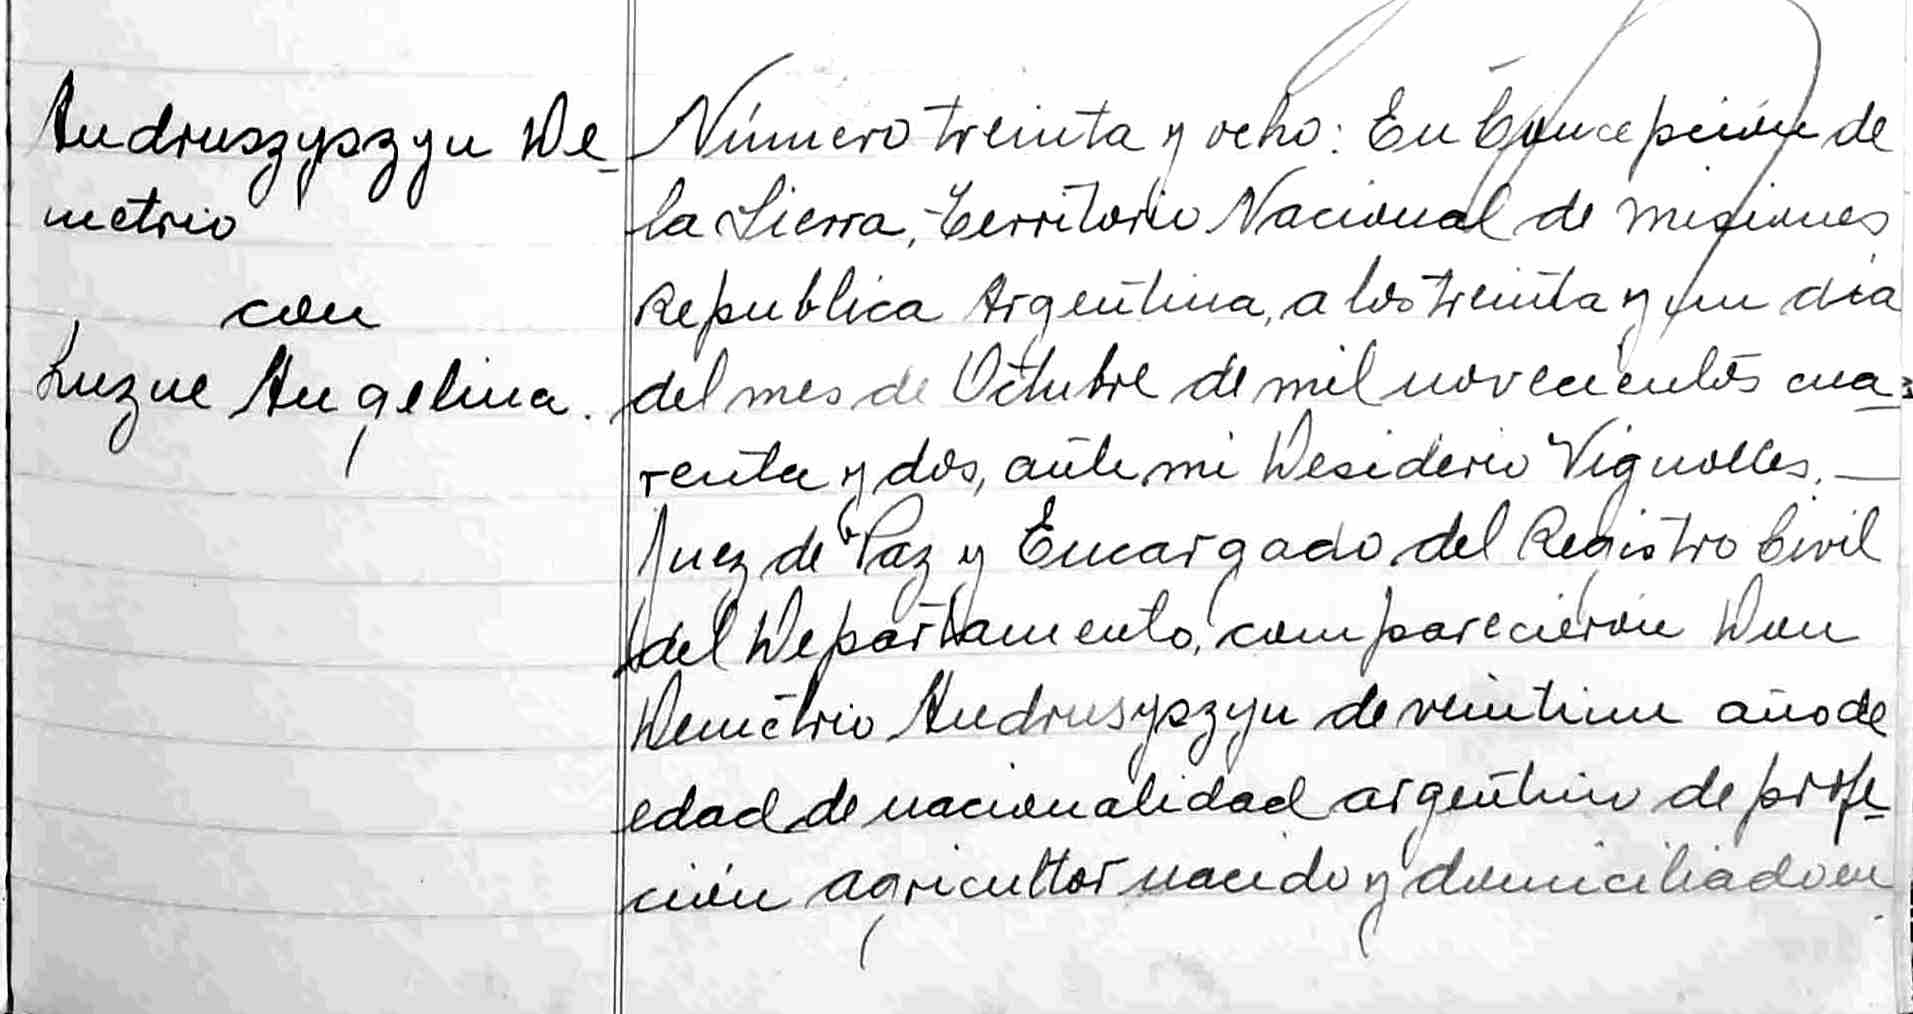 Andruszyszyn De-
metrio
con
Luzne Angelina.
Número treinta y ocho: En Concepción de
la Sierra, Territorio Nacional de Misiones
Republica Argentina, a los treinta y un dia
del mes de Octubre de mil novecientos cua-
renta y dos, ante mi Desiderio Vignolles,—
Juez de Paz y Encargado del Registro Civil
del Departamento, comparecieron Don
Demetrio Andrusyszyn de veintiun año de
edad de nacionalidad argentino de profe-
ción agricultor nacido y domiciliado en